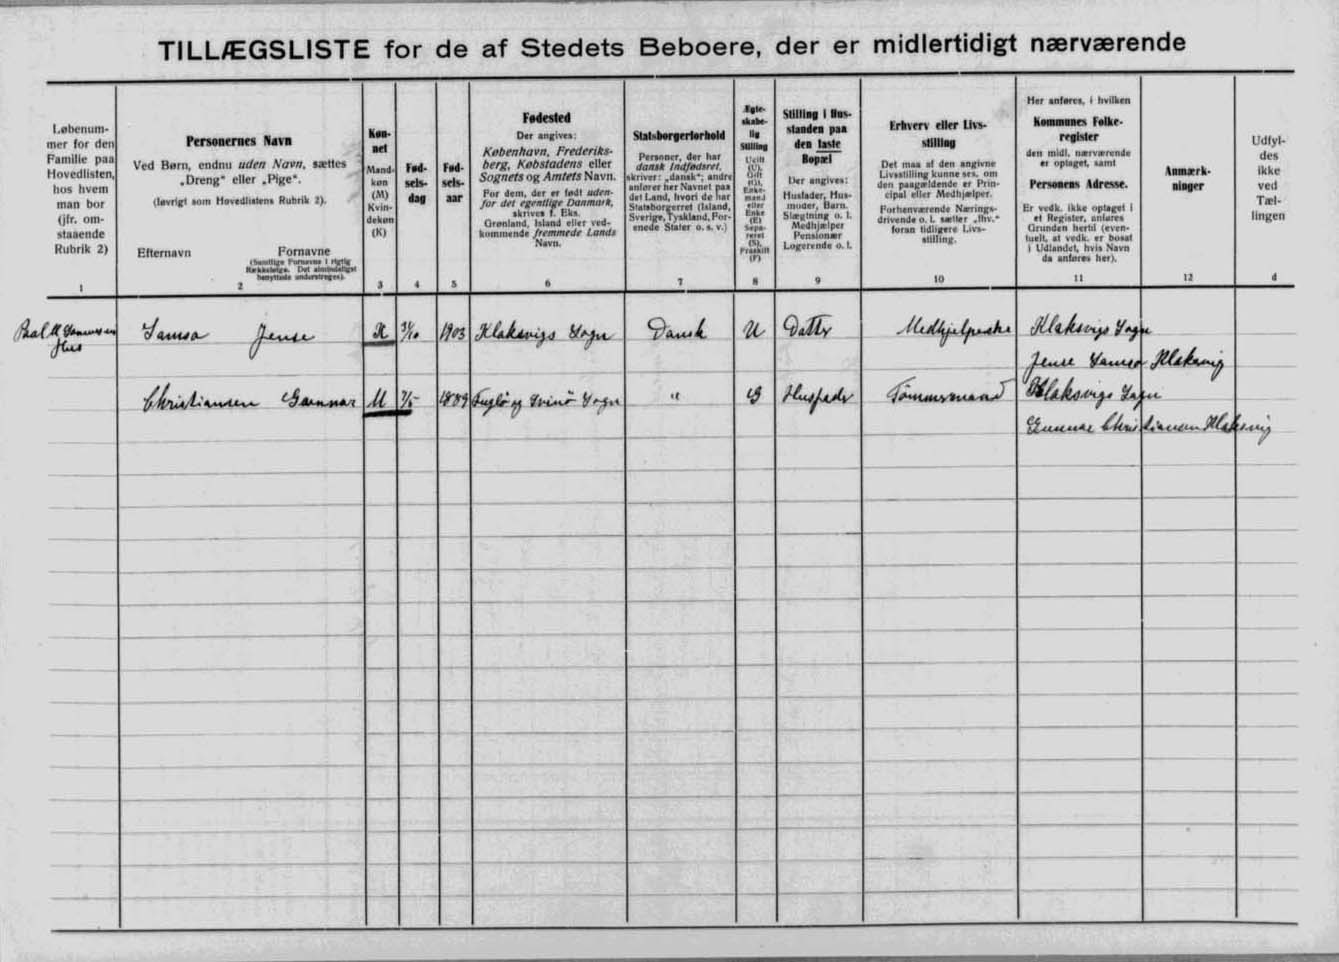 TILLÆGSLISTE for de af Stedets Beboere, der er midlertidigt nærværende
Løbenum-
mer for den
Familie paa
Hovedlisten,
hos hvem
man bor
(jfr. om-
staaende
Rubrik 2)
1
Personernes Navn
Ved Børn, endnu uden Navn, sættes
„Dreng“ eller „Pige“.
(Iøvrigt som Hovedlistens Rubrik 2).
Efternavn Fornavne
(Samtlige Fornavne i rigtig
Rækkefølge. Det almindeligst
benyttede understreges).
2
Køn-
net
Mand-
køn
(M)
Kvin-
dekøn
(K)
3
Fød-
sels-
dag
4
Fød-
sels-
aar
5
Fødested
Der angives:
København, Frederiks-
berg, Købstadens eller
Sognets og Amtets Navn.
For dem, der er født uden-
for det egentlige Danmark,
skrives f. Eks.
Grønland, Island eller ved-
kommende fremmede Lands
Navn.
6
Statsborgerforhold
Personer, der har
dansk Indfødsret,
skriver: „dansk“; andre
anfører her Navnet paa
det Land, hvori de har
Statsborgerret (Island,
Sverige, Tyskland, For-
enede Stater o. s. v.)
7
Ægte-
skabe-
lig
Stilling
Ugift
(U),
Gift
(G),
Enke-
mand
eller
Enke
(E)
Sepa-
reret
(S),
Fraskilt
(F)
8
Stilling i Hus-
standen paa
den faste
Bopæl
Der angives:
Husfader, Hus-
moder, Barn,
Slægtning o. l.
Medhjælper
Pensionær
Logerende o. l.
9
Erhverv eller Livs-
stilling
Det maa af den angivne
Livsstilling kunne ses, om
den paagældende er Prin-
cipal eller Medhjælper.
Forhenværende Nærings-
drivende o. l. sætter „fhv.“
foran tidligere Livs-
stilling.
10
Her anføres, i hvilken
Kommunes Folke-
register
den midl. nærværende
er optaget, samt
Personens Adresse.
Er vedk. ikke optaget i
et Register, anføres
Grunden hertil (even-
tuelt, at vedk. er bosat
i Udlandet, hvis Navn
da anføres her).
11
Anmærk-
ninger
12
Udfyl-
des
ikke
ved
Tæl-
lingen
d
Samsø Jense K 3/10 1903 Klaksvigs Sogn Dansk U Datter Medhjelperske Klaksvigs Sogn
Hus
Jense Samsø Klaksvig
Christiansen Gunnar M 7/5 1889 Fuglø og Svinø Sogn " G Husfader Tømmermand Klaksvigs Sogn
Gunnar Christiansen Klaksvig